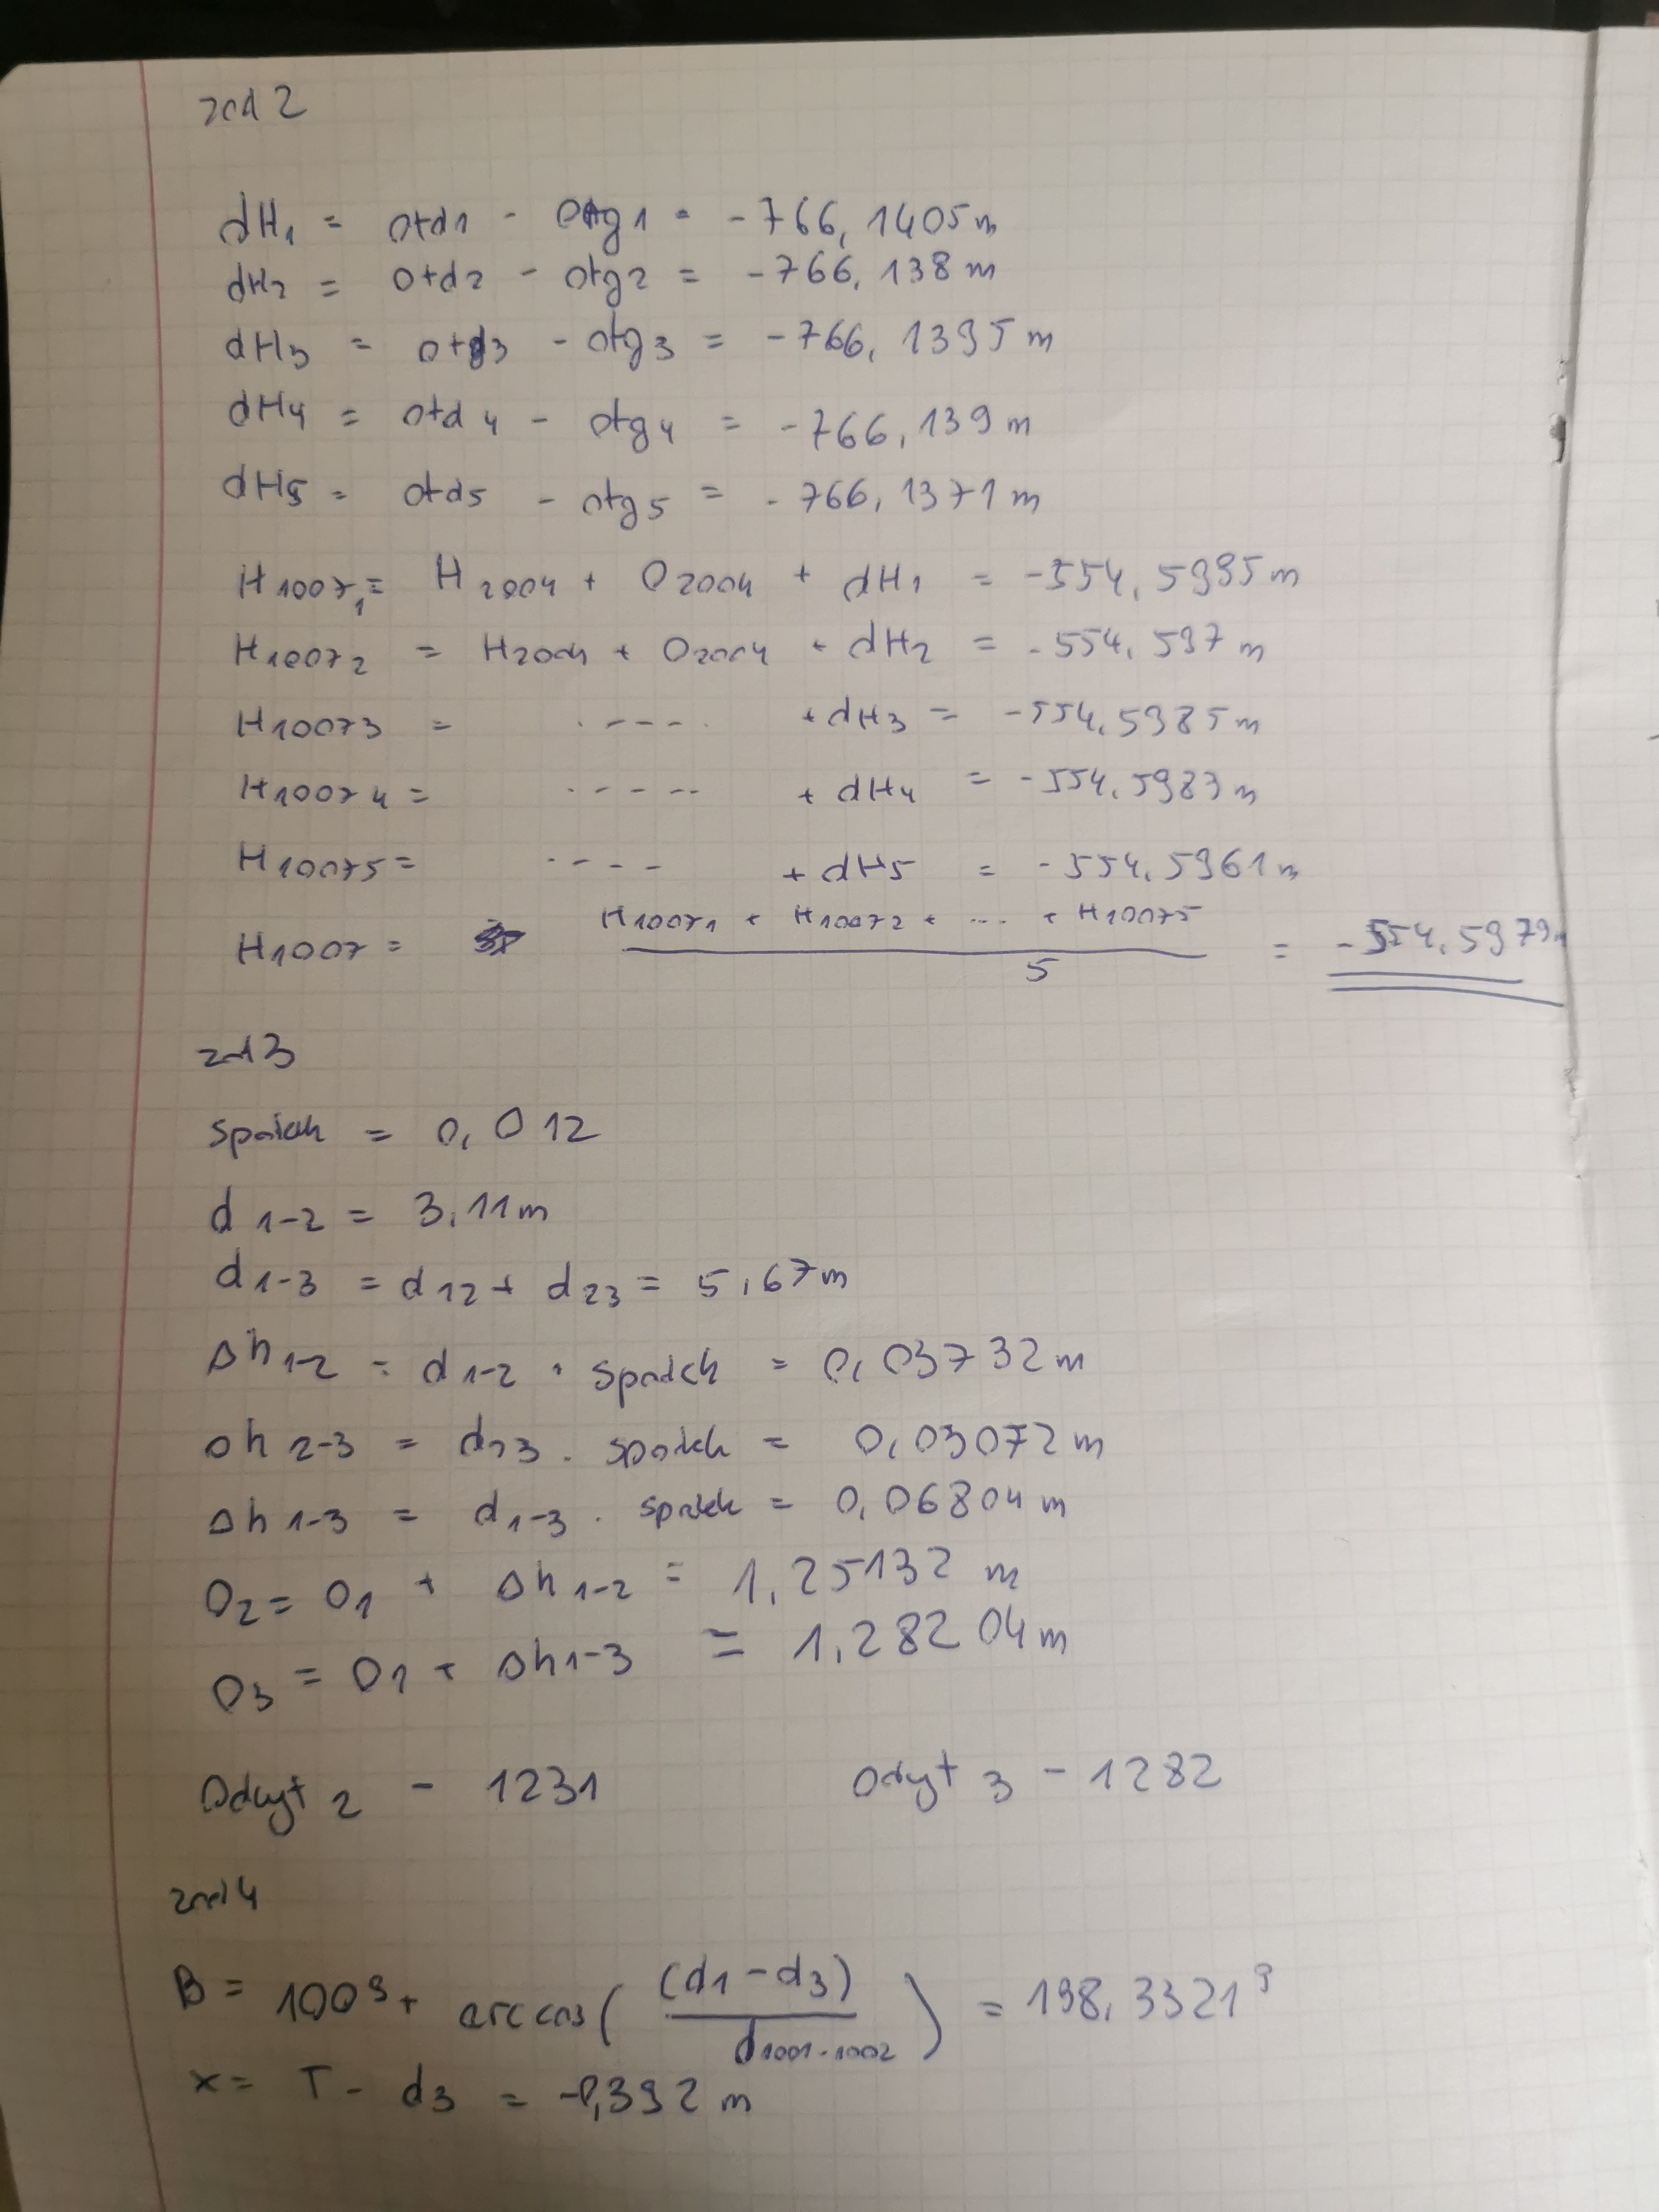 zad 2
dH₁ = otd1 - otg1 = -766,1405 m
dH₂ = otd2 - otg2 = -766,138 m
dH₃ = otd3 - otg3 = -766,1395 m
dH₄ = otd4 - otg4 = -766,139 m
dH₅ = otd5 - otg5 = -766,1371 m
H1007₁ = H2004 + O2004 + dH1 = -554,5995 m
H1007₂ = H2004 + O2004 + dH2 = -554,597 m
H1007₃ = ----- + dH3 = -554,5985 m
H1007₄ = ----- + dH4 = -554,5983 m
H1007₅ = ---- + dH5 = -554,5961 m
H1007 = (H1007₁ + H1007₂ + ... + H1007₅) / 5 = -554,5979 m
zad 3
spadek = 0,012
d1-2 = 3,11 m
d1-3 = d12 + d23 = 5,67 m
Δh1-2 = d1-2 · spadek = 0,03732 m
Δh2-3 = d23 · spadek = 0,03072 m
Δh1-3 = d1-3 · spadek = 0,06804 m
O2 = O1 + Δh1-2 = 1,25132 m
O3 = O1 + Δh1-3 = 1,28204 m
Odczyt 2 - 1231 Odczyt 3 - 1282
zad 4
B = 100ᵍ + arccos((d1 - d3) / d1001-1002) = 198,3321ᵍ
x = T - d3 = -0,392 m